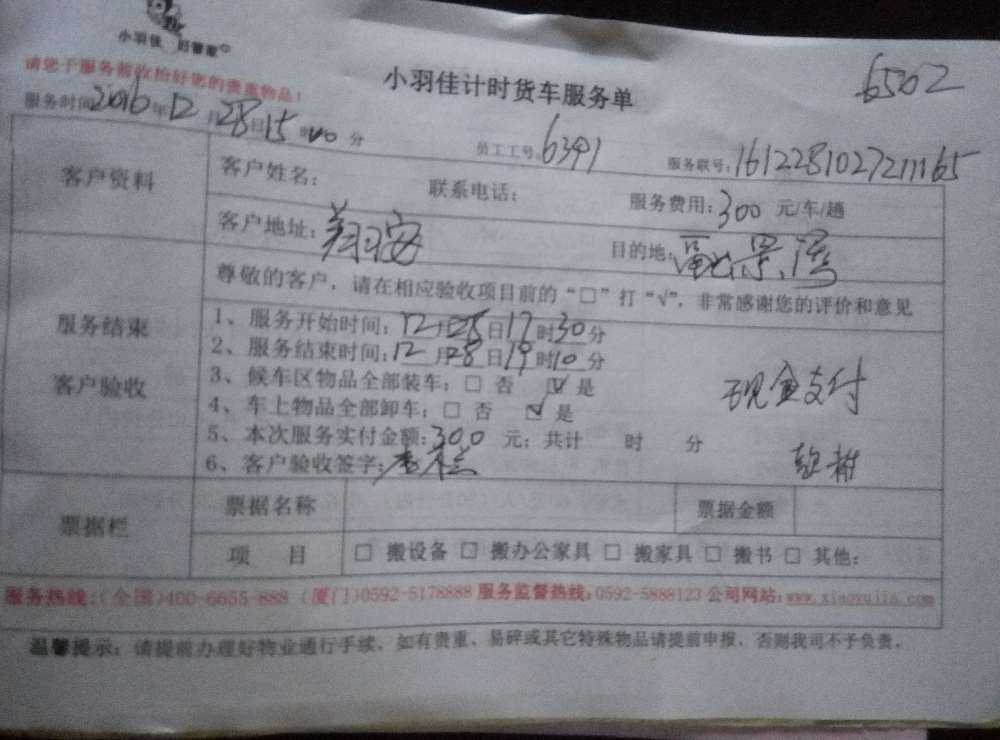 小羽佳 好管家
请您于服务前收拾好您的贵重物品!
小羽佳计时货车服务单
6502
服务时间2016年12月28日15时00分
员工工号:6391
服务联号:1612281027211165
客户资料
客户姓名: 联系电话: 服务费用:300 元/车/趟
客户地址:翔安 目的地: 景湾
服务结束
客户验收
尊敬的客户,请在相应验收项目前的“□”打“√”,非常感谢您的评价和意见
1、服务开始时间:12月28日17时30分
2、服务结束时间:12月28日19时10分
3、候车区物品全部装车:□ 否 ☑ 是
4、车上物品全部卸车:□ 否 ☑ 是
现金支付
5、本次服务实付金额:300 元;共计 时 分
6、客户验收签字:
票据栏
票据名称 票据金额
项 目 □ 搬设备 □ 搬办公家具 □ 搬家具 □ 搬书 □ 其他:
服务热线:(全国)400-6655-888 (厦门)0592-5178888 服务监督热线:0592-5888123 公司网站:www.xiaoyujia.com
温馨提示:请提前办理好物业通行手续,如有贵重、易碎或其它特殊物品请提前申报,否则我司不予负责。